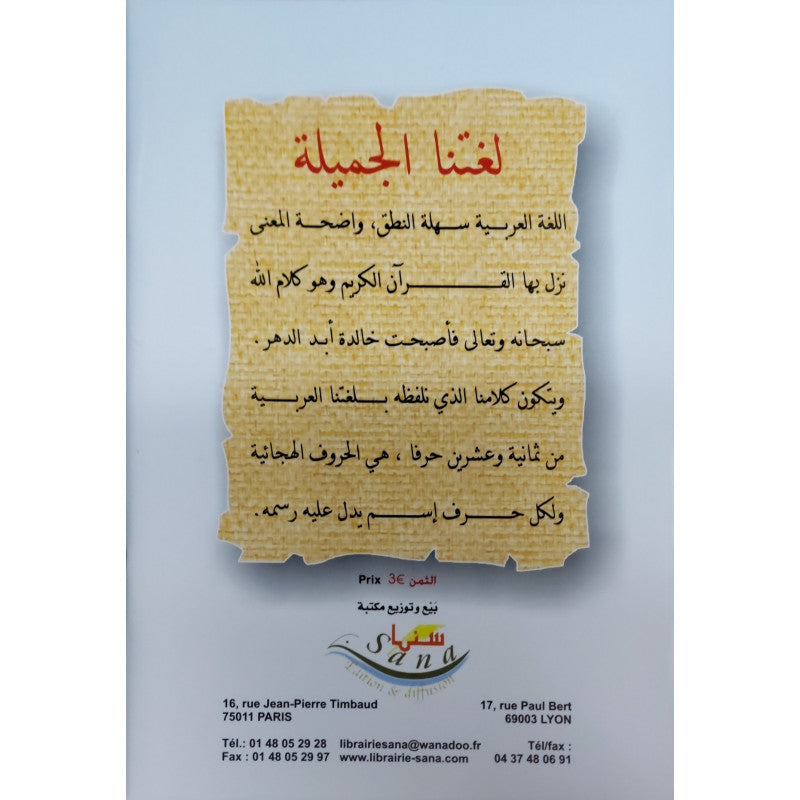 لغتنا الجميلة
اللغة العربية سهلة النطق، واضحة المعنى
نزل بها القرآن الكريم وهو كلام الله
سبحانه وتعالى فأصبحت خالدة أبد الدهر.
ويتكون كلامنا الذي نلفظه بلغتنا العربية
من ثمانية وعشرين حرفا ، هي الحروف الهجائية
ولكل حرف إسم يدل عليه رسمه.
Prix 3€ الثمن
بَيْع وتوزيع مكتبة
سنا
Sana
Edition & diffusion
16, rue Jean-Pierre Timbaud
75011 PARIS
17, rue Paul Bert
69003 LYON
Tél.: 01 48 05 29 28 librairiesana@wanadoo.fr
Fax : 01 48 05 29 97 www.librairie-sana.com
Tél/fax :
04 37 48 06 91